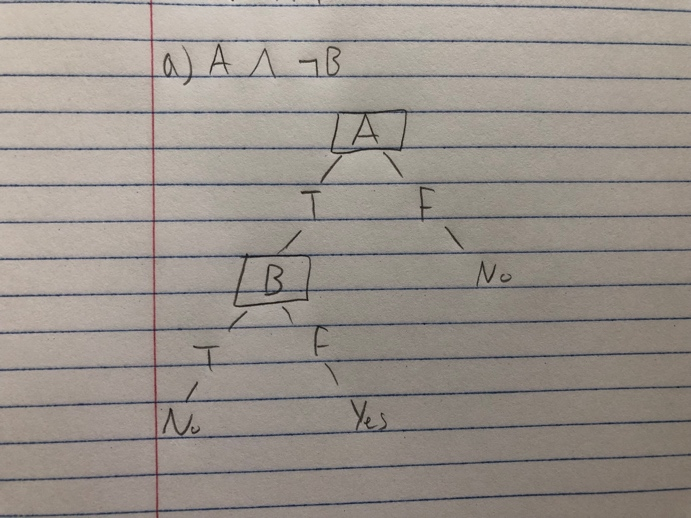 a) A ∧ ¬B
A
T F
B No
T F
No Yes